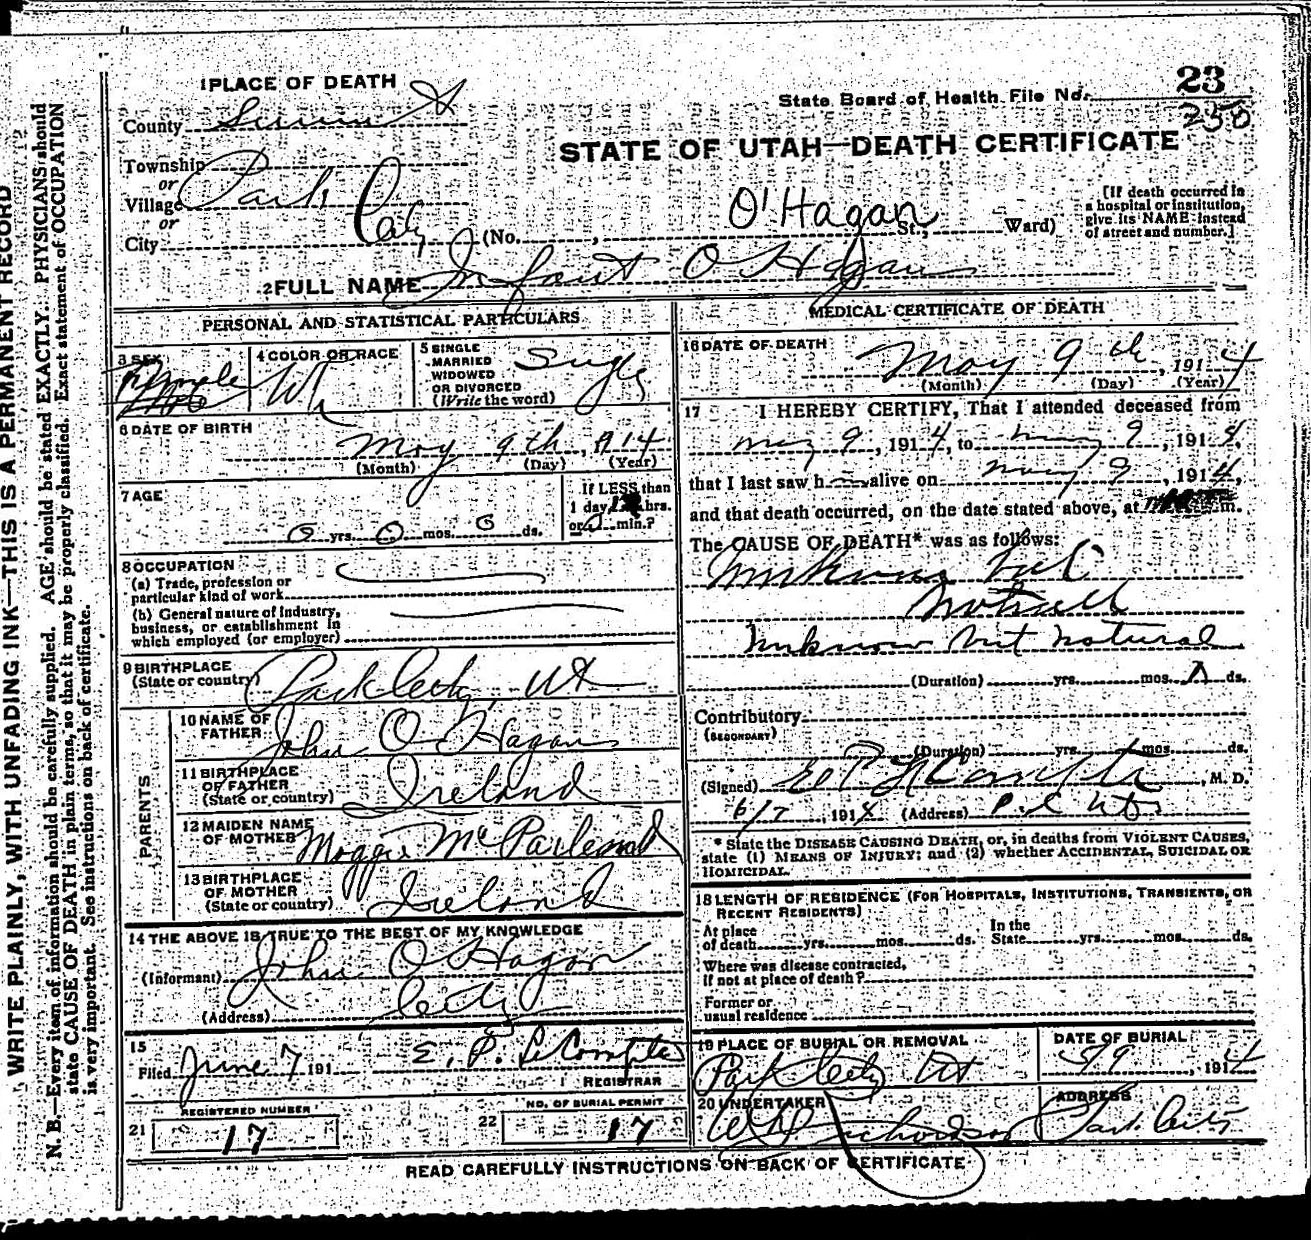 WRITE PLAINLY, WITH UNFADING INK—THIS IS A PERMANENT RECORD
N. B.—Every item of information should be carefully supplied. AGE should be stated EXACTLY. PHYSICIANS should
state CAUSE OF DEATH in plain terms, so that it may be properly classified. Exact statement of OCCUPATION
is very important. See instructions on back of certificate.
1 PLACE OF DEATH
County Summit
Township
or
Village Park City
or
City (No. , St., Ward)
23
State Board of Health File No.
250
STATE OF UTAH—DEATH CERTIFICATE
O'Hagan
[If death occurred in
a hospital or institution,
give its NAME instead
of street and number.]
2 FULL NAME Infant O'Hagan
PERSONAL AND STATISTICAL PARTICULARS
3 SEX
4 COLOR OR RACE Wh
5 SINGLE
MARRIED
WIDOWED
OR DIVORCED
(Write the word) Single
6 DATE OF BIRTH
May 9th, 1914
(Month) (Day) (Year)
7 AGE
0 yrs. 0 mos. 0 ds.
If LESS than
1 day, hrs.
or min.?
8 OCCUPATION
(a) Trade, profession or
particular kind of work
(b) General nature of Industry,
business, or establishment in
which employed (or employer)
9 BIRTHPLACE
(State or country) Park City, Ut
PARENTS
10 NAME OF
FATHER John O'Hagan
11 BIRTHPLACE
OF FATHER
(State or country) Ireland
12 MAIDEN NAME
OF MOTHER Maggie McParland
13 BIRTHPLACE
OF MOTHER
(State or country) Ireland
14 THE ABOVE IS TRUE TO THE BEST OF MY KNOWLEDGE
(Informant) John O'Hagan
(Address) City
15
Filed June 7 191 E. P. LeCompte
REGISTRAR
REGISTERED NUMBER
21 17
NO. OF BURIAL PERMIT
22 17
MEDICAL CERTIFICATE OF DEATH
16 DATE OF DEATH
May 9th, 1914
(Month) (Day) (Year)
17 I HEREBY CERTIFY, That I attended deceased from
May 9, 1914, to May 9, 1914,
that I last saw h alive on May 9, 1914,
and that death occurred, on the date stated above, at m.
The CAUSE OF DEATH* was as follows:
Unknown but
natural
(Duration) yrs. mos. ds.
Contributory
(SECONDARY)
(Duration) yrs. mos. ds.
(Signed) E P LeCompte, M. D.
6/7, 1914 (Address) P.C. Utah
* State the DISEASE CAUSING DEATH, or, in deaths from VIOLENT CAUSES,
state (1) MEANS OF INJURY; and (2) whether ACCIDENTAL, SUICIDAL OR
HOMICIDAL.
18 LENGTH OF RESIDENCE (FOR HOSPITALS, INSTITUTIONS, TRANSIENTS, OR
RECENT RESIDENTS)
At place
of death yrs. mos. ds.
In the
State yrs. mos. ds.
Where was disease contracted,
if not at place of death?
Former or
usual residence
19 PLACE OF BURIAL OR REMOVAL
Park City Ut
DATE OF BURIAL
5/9, 1914
20 UNDERTAKER
Richardson
ADDRESS
Park City
READ CAREFULLY INSTRUCTIONS ON BACK OF CERTIFICATE